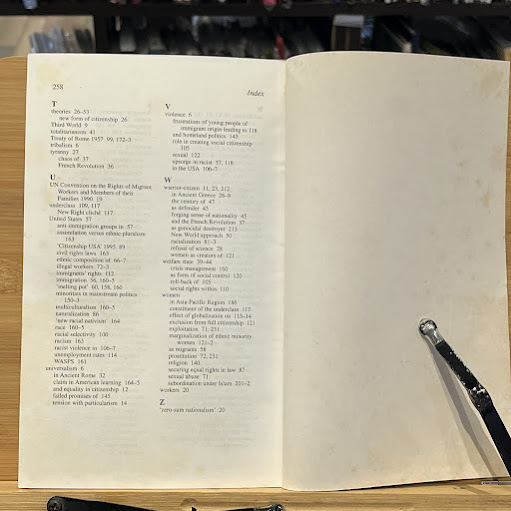 258
Index
T
theories 26–53
new form of citizenship 26
Third World 9
totalitarianism 41
Treaty of Rome 1957 99, 172–3
tribalism 6
tyranny 27
chaos of 37
French Revolution 36
U
UN Convention on the Rights of Migrant
Workers and Members of their
Families 1990 19
underclass 109, 117
New Right cliché 117
United States 57
anti-immigration groups in 57
assimilation versus ethnic pluralism
163
'Citizenship USA' 1995 89
civil rights laws 163
ethnic composition of 66–7
illegal workers 72–3
immigrants' rights 112
immigration 56, 160–5
'melting pot' 60, 158, 160
minorities in mainstream politics
150–3
multiculturalism 160–5
naturalization 86
'new racial nativism' 164
race 160–5
racial selectivity 100
racism 163
racist violence in 106–7
unemployment rates 114
WASPS 161
universalism 6
in Ancient Rome 32
claim in American learning 164–5
and equality in citizenship 12
failed promises of 145
tension with particularism 14
V
violence 6
frustrations of young people of
immigrant origin leading to 118
and homeland politics 145
role in creating social citizenship
105
sexual 122
upsurge in racist 57, 118
in the USA 106–7
W
warrior-citizen 11, 23, 212
in Ancient Greece 26–9
the century of 47
as defender 45
forging sense of nationality 45
and the French Revolution 37
as genocidal destroyer 213
New World approach 50
racialization 81–3
refusal of science 28
women as creators of 121
welfare state 39–44
crisis management 160
as form of social control 120
roll-back of 105
social rights within 110
women
in Asia-Pacific Region 186
constituent of the underclass 117
effect of globalization on 113–14
exclusion from full citizenship 121
exploitation 71, 251
marginalization of ethnic minority
women 121–2
as migrants 58
prostitution 72, 251
religion 140
securing equal rights in law 87
sexual abuse 71
subordination under Islam 201–2
workers 20
Z
'zero-sum nationalism' 20